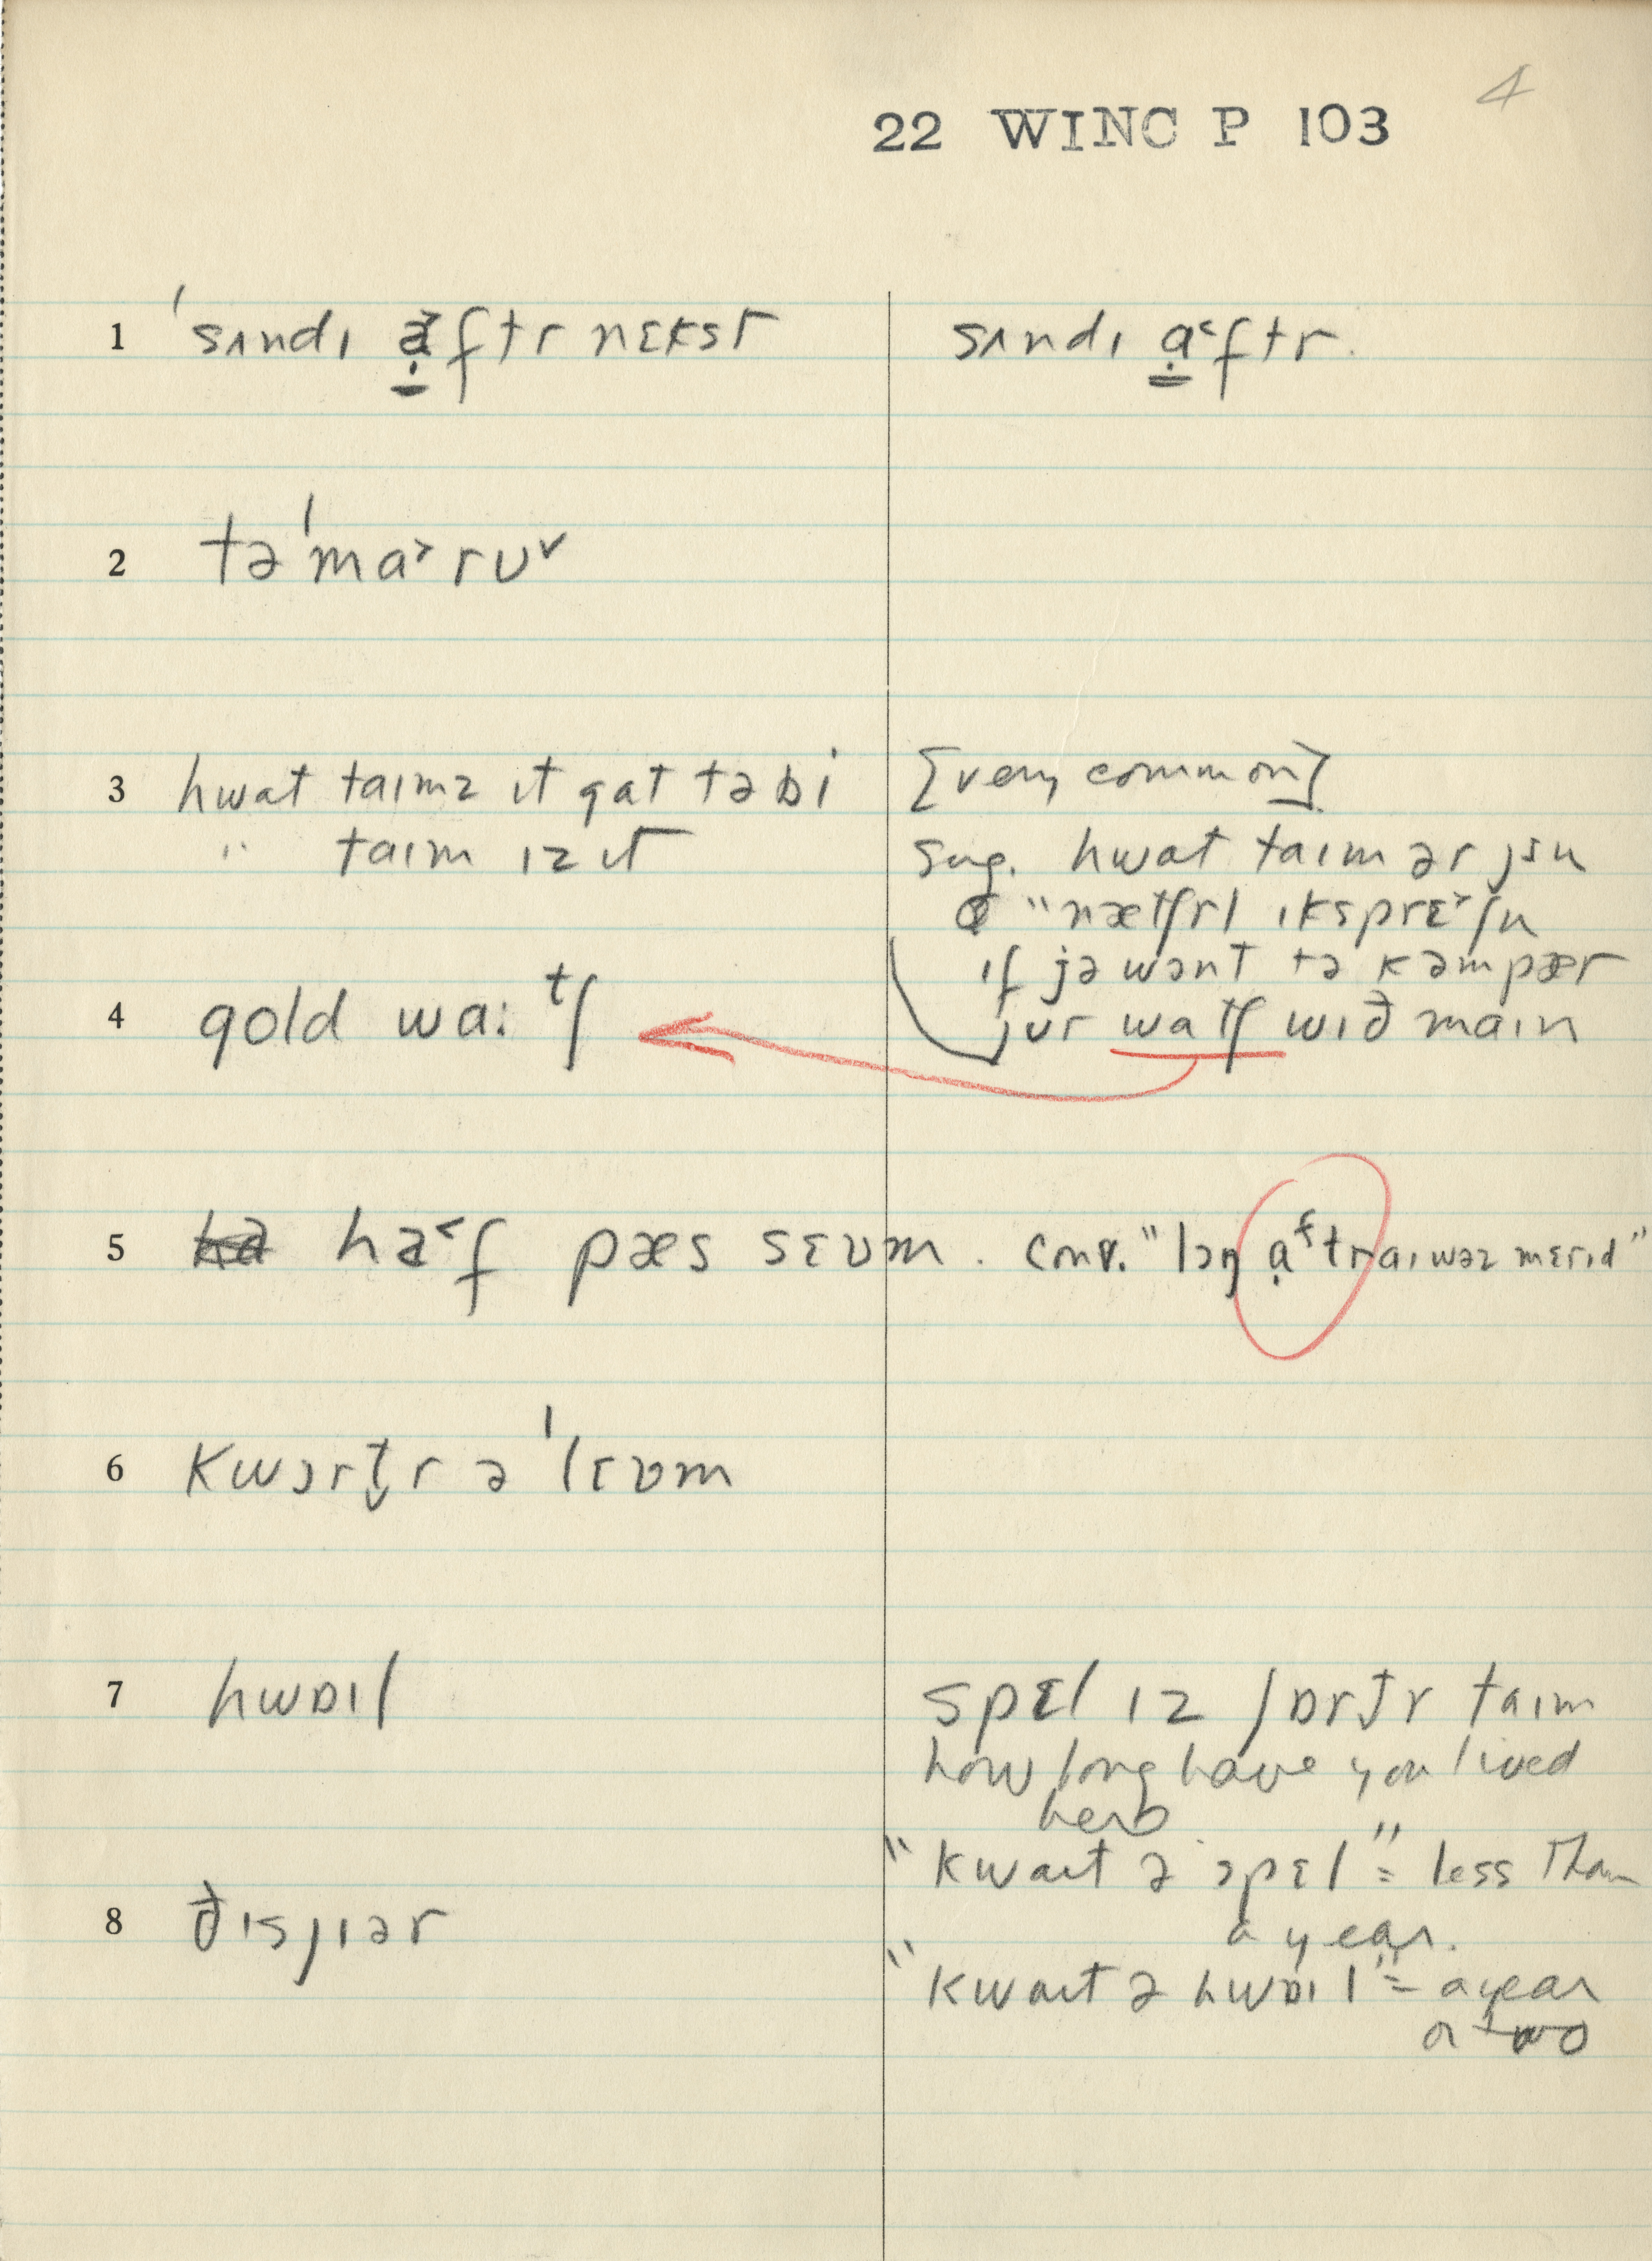 4
22 WINC P 103
1 ˈsʌndɪ a̤˃ftr nɛkst
sʌndɪ a̤˂ftr.
2 təˈma˃rʊ˅
3 hwat taɪmz ɪt gat tə bi
[very common]
" taɪm ɪz ɪt
sug. hwat taɪm ər
"nætʃrl ɪksprɛ˃ʃn
ɪf jə wɔnt tə kəmpær
4 gold wa:tʃ
jʊr watʃ wɪð maɪn
5 ha˂f pæs sɛʊm. conv. "lɔŋ ạftr aɪ wəz mɛrɪd"
6 kwɔrt̬r əˈlɛʊm
7 hwɒɪl
spɛl ɪz ʃɒrt̬r taɪm
how long have you lived
here
"kwaɪt ə spɛl" = less than
a year.
8 ðɪsjɪər
"kwaɪt ə hwɒɪl" = a year
or two